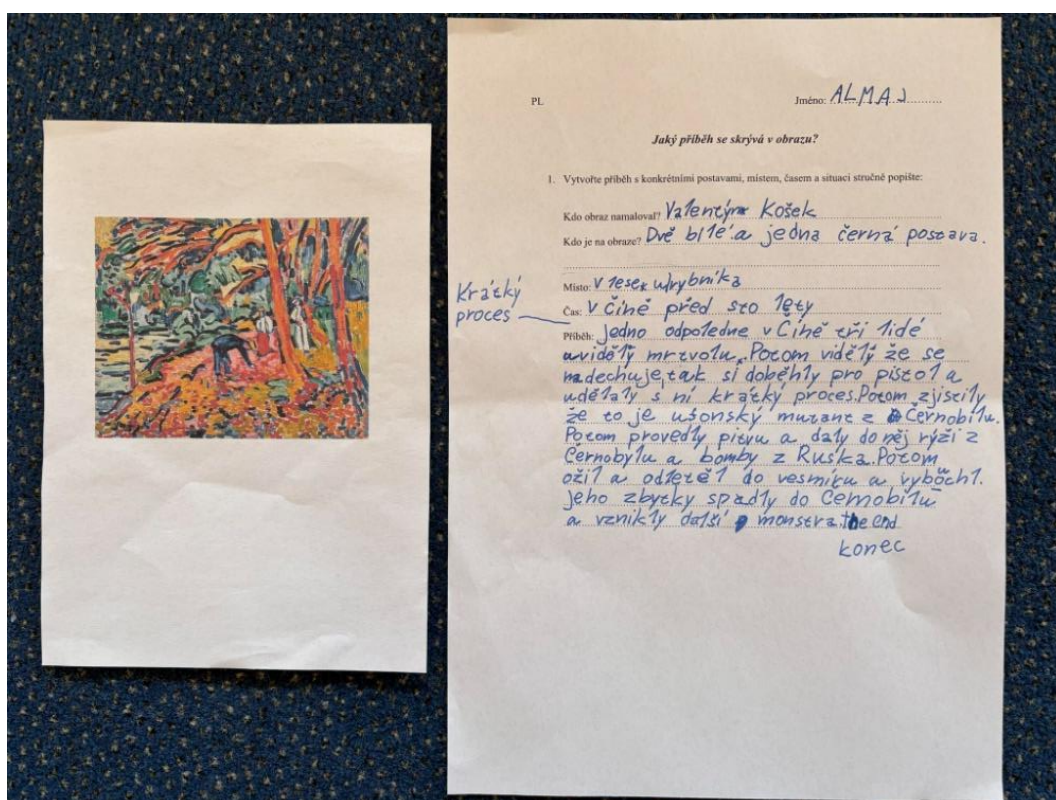 PL
Jméno: ALMA J
Jaký příběh se skrývá v obrazu?
1. Vytvořte příběh s konkrétními postavami, místem, časem a situací stručně popište:
Kdo obraz namaloval? Valentýn Košek
Kdo je na obraze? Dvě bílé a jedna černá postava.
Místo: V lese u rybníka
Krátký
proces
Čas: V číně před sto lety
Příběh: Jedno odpoledne v Číně tři lidé
uviděly mrtvolu. Potom viděly že se
nadechuje, tak si doběhly pro pistol a
udělaly s ní krátký proces. Potom zjistily
že to je ušonský mutant z Černobilu.
Potom provedly pitvu a daly do něj rýži z
Černobylu a bomby z Ruska. Potom
ožil a odletěl do vesmíru a vyböchl.
Jeho zbytky spadly do Černobilu
a vznikly další monstra. the end
konec